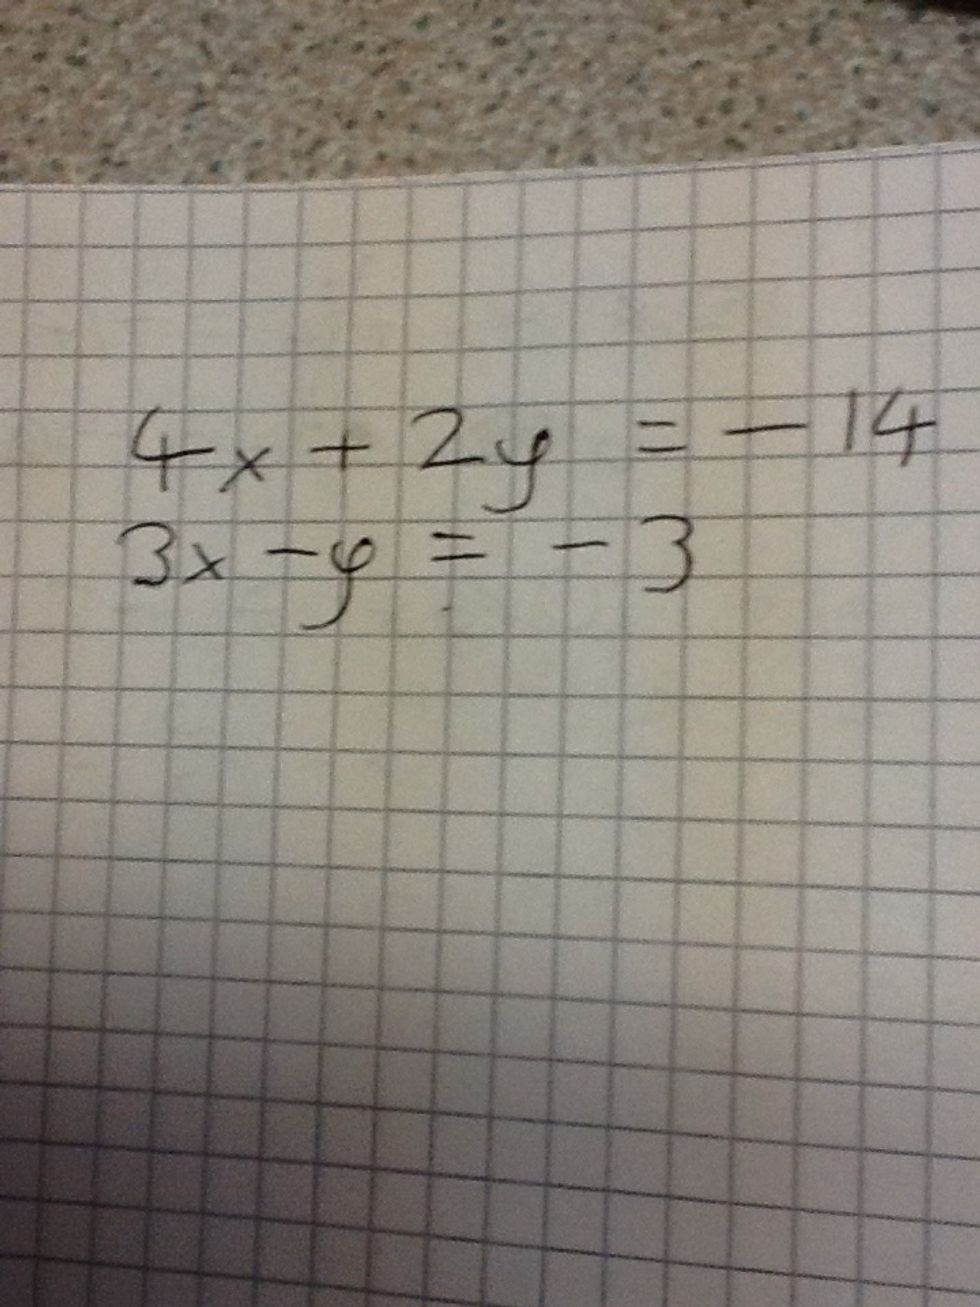 4x + 2y = - 14
3x - y = - 3